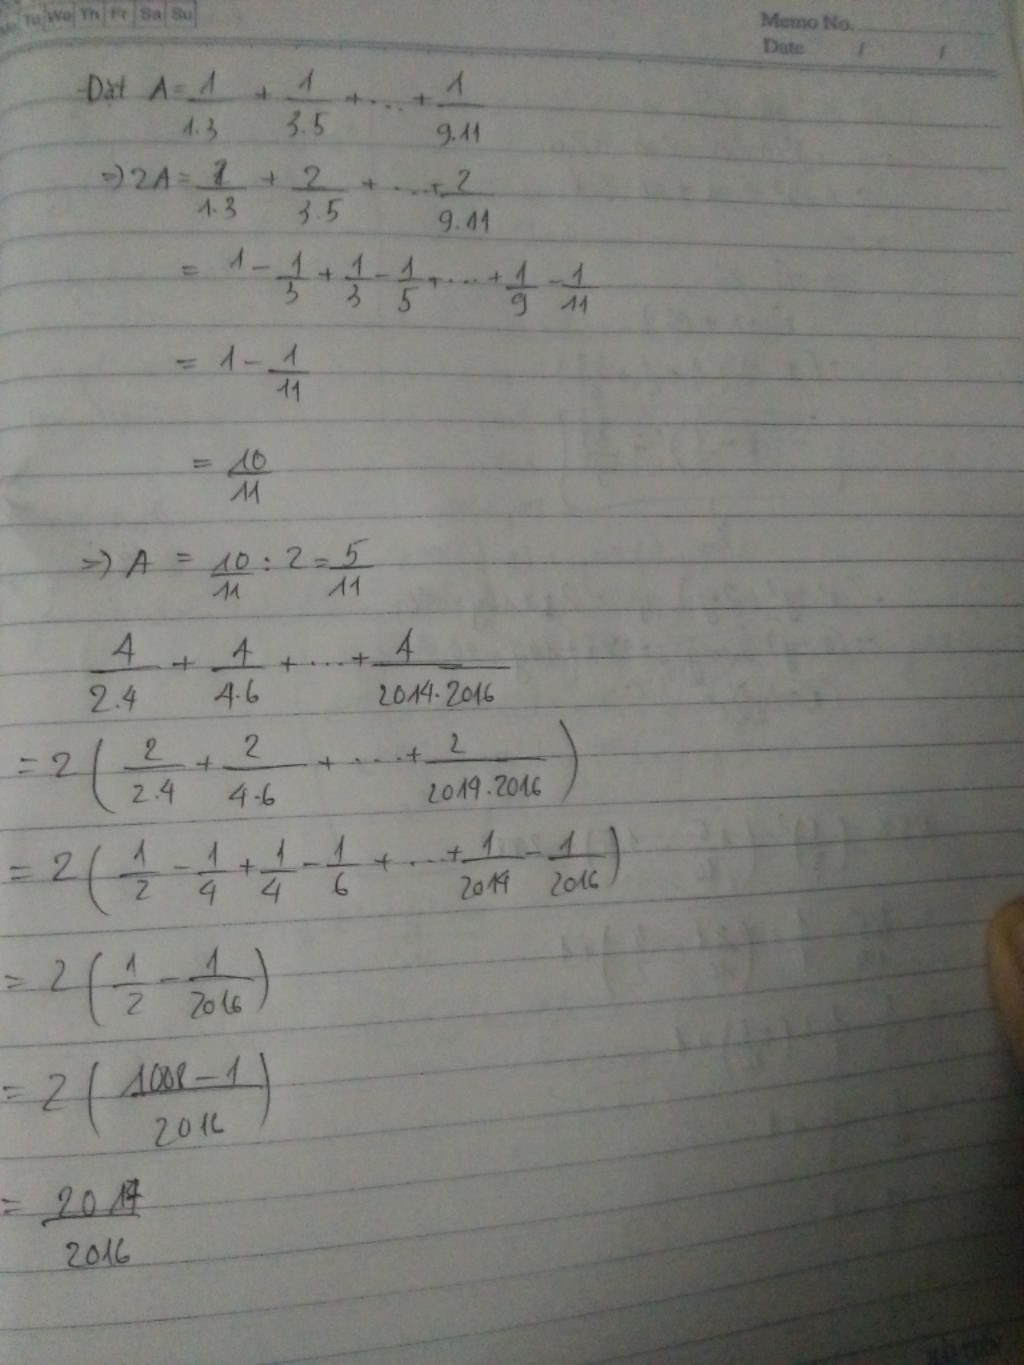 Mo Tu We Th Fr Sa Su
Memo No.
Date / /
Đặt A = 1/1.3 + 1/3.5 + ... + 1/9.11
=) 2A = 2/1.3 + 2/3.5 + ... + 2/9.11
= 1 - 1/3 + 1/3 - 1/5 + ... + 1/9 - 1/11
= 1 - 1/11
= 10/11
=) A = 10/11 : 2 = 5/11
4/2.4 + 4/4.6 + ... + 4/2014.2016
= 2 ( 2/2.4 + 2/4.6 + ... + 2/2014.2016 )
= 2 ( 1/2 - 1/4 + 1/4 - 1/6 + ... + 1/2014 - 1/2016 )
= 2 ( 1/2 - 1/2016 )
= 2 ( 1008 - 1/2016 )
= 2017/2016